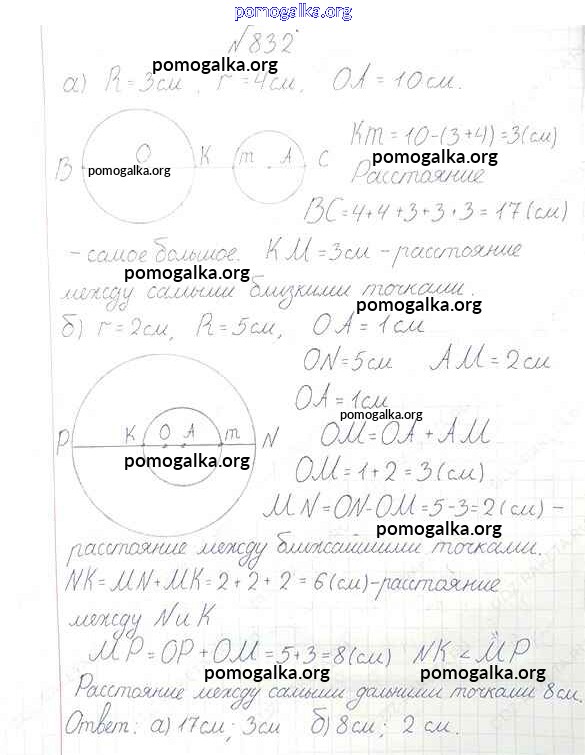 pomogalka.org
№832
pomogalka.org
а) R=3см, r=4см, OA=10см.
B O K m A C
pomogalka.org
Km=10-(3+4)=3(см)
pomogalka.org
Расстояние
BC=4+4+3+3+3=17(см)
-самое большое. KM=3см-расстояние
pomogalka.org
между самыми близкими точками.
pomogalka.org
б) r=2см, R=5см, OA=1см
ON=5см AM=2см
OA=1см
pomogalka.org
P K O A m N
pomogalka.org
OM=OA+AM
OM=1+2=3(см)
MN=ON-OM=5-3=2(см)-
pomogalka.org
расстояние между ближайшими точками.
NK=MN+MK=2+2+2=6(см)-расстояние
между N и K
MP=OP+OM=5+3=8(см) NK<MP
pomogalka.org pomogalka.org
Расстояние между самыми дальними точками 8см.
Ответ: а) 17см; 3см б) 8см; 2см.
pomogalka.org